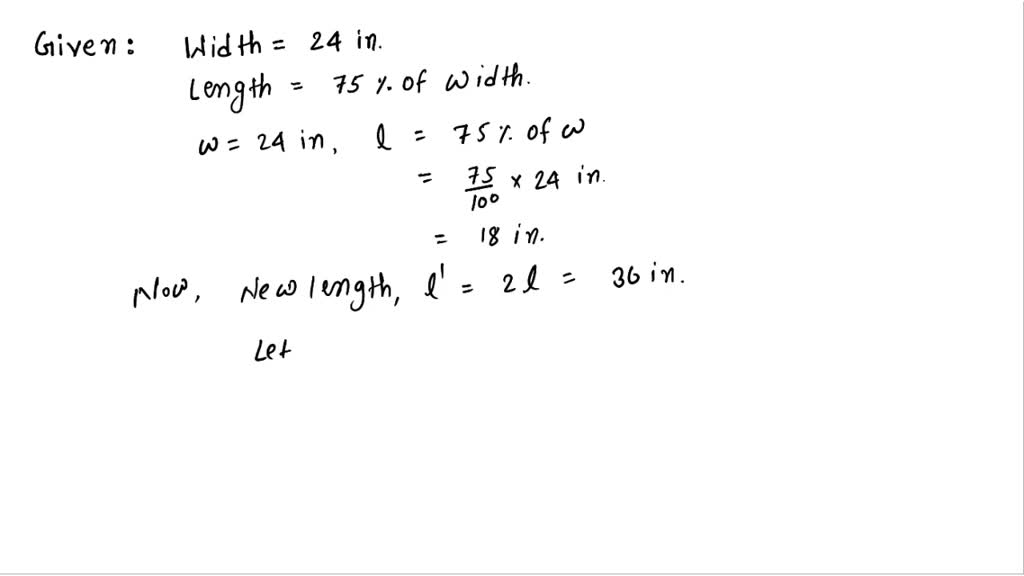 Given: Width = 24 in.
Length = 75 % of width.
w = 24 in, l = 75 % of w
= 75/100 x 24 in.
= 18 in.
Now, New length, l' = 2l = 36 in.
Let